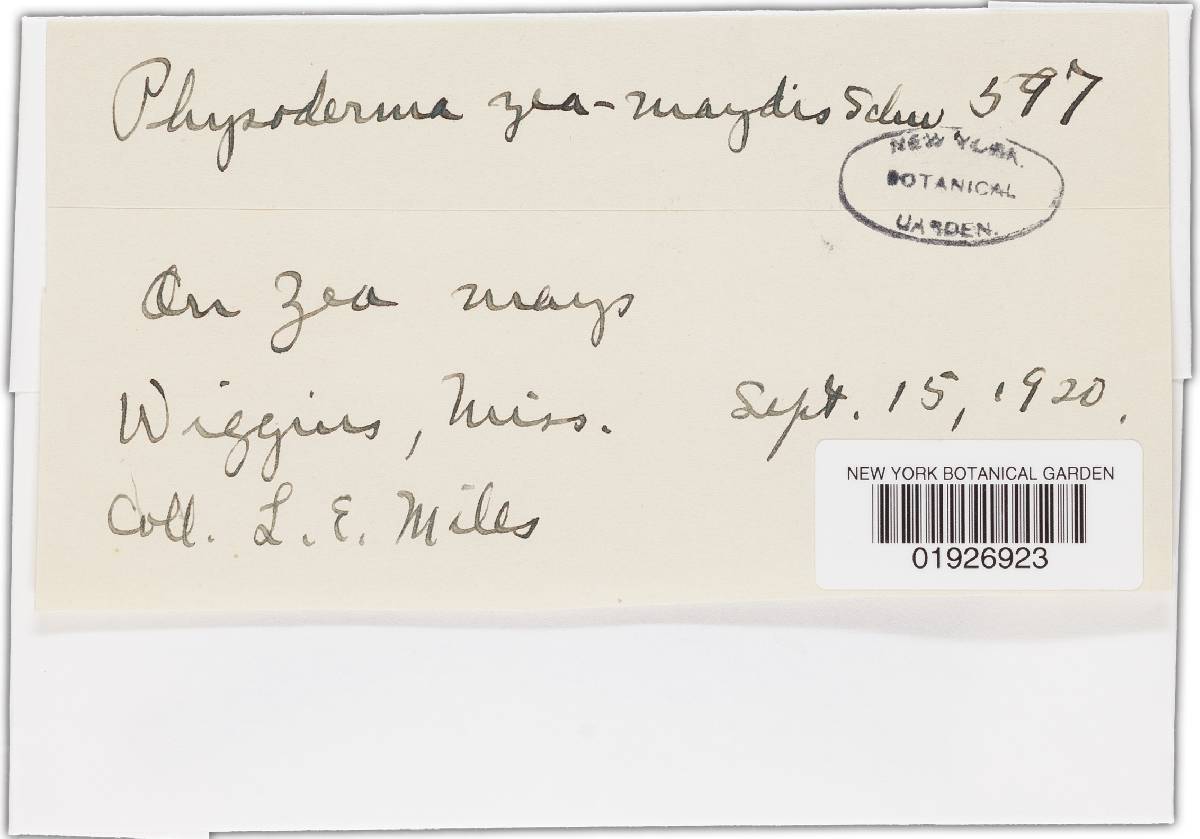 Physoderma zea-maydis Schw 597
NEW YORK
BOTANICAL
GARDEN.
On Zea mays
Wiggins, Miss. Sept. 15, 1920.
Coll. L. E. Miles
NEW YORK BOTANICAL GARDEN
01926923